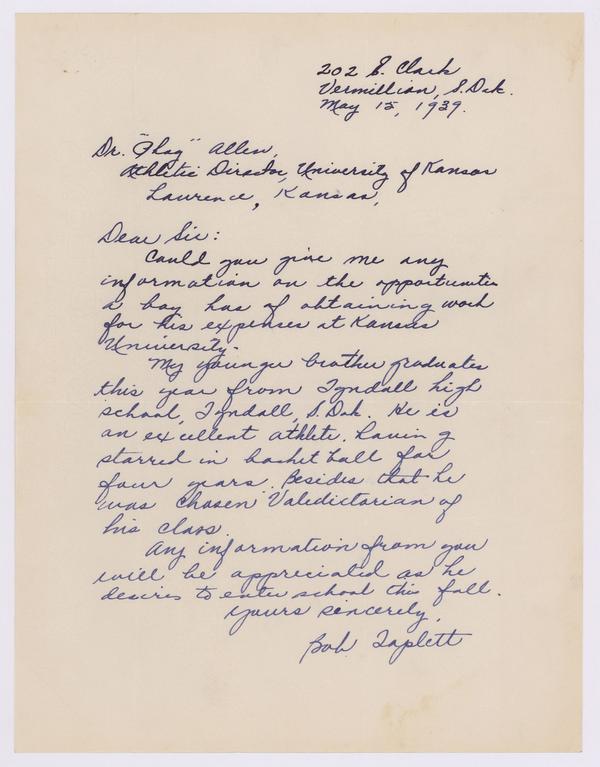 202 E. Clark
Vermillion, S. Dak.
May 15, 1939.
Dr. "Phog" Allen,
Athletic Director, University of Kansas
Lawrence, Kansas,
Dear Sir:
Could you give me any
information on the opportunities
a boy has of obtaining work
for his expenses at Kansas
University.
My younger brother graduates
this year from Tyndall high
school, Tyndall, S. Dak. He is
an excellent athlete, having
starred in basket ball for
four years. Besides that he
was chosen Valedictorian of
his class.
Any information from you
will be appreciated as he
desires to enter school this fall.
Yours sincerely,
Bob Taplett